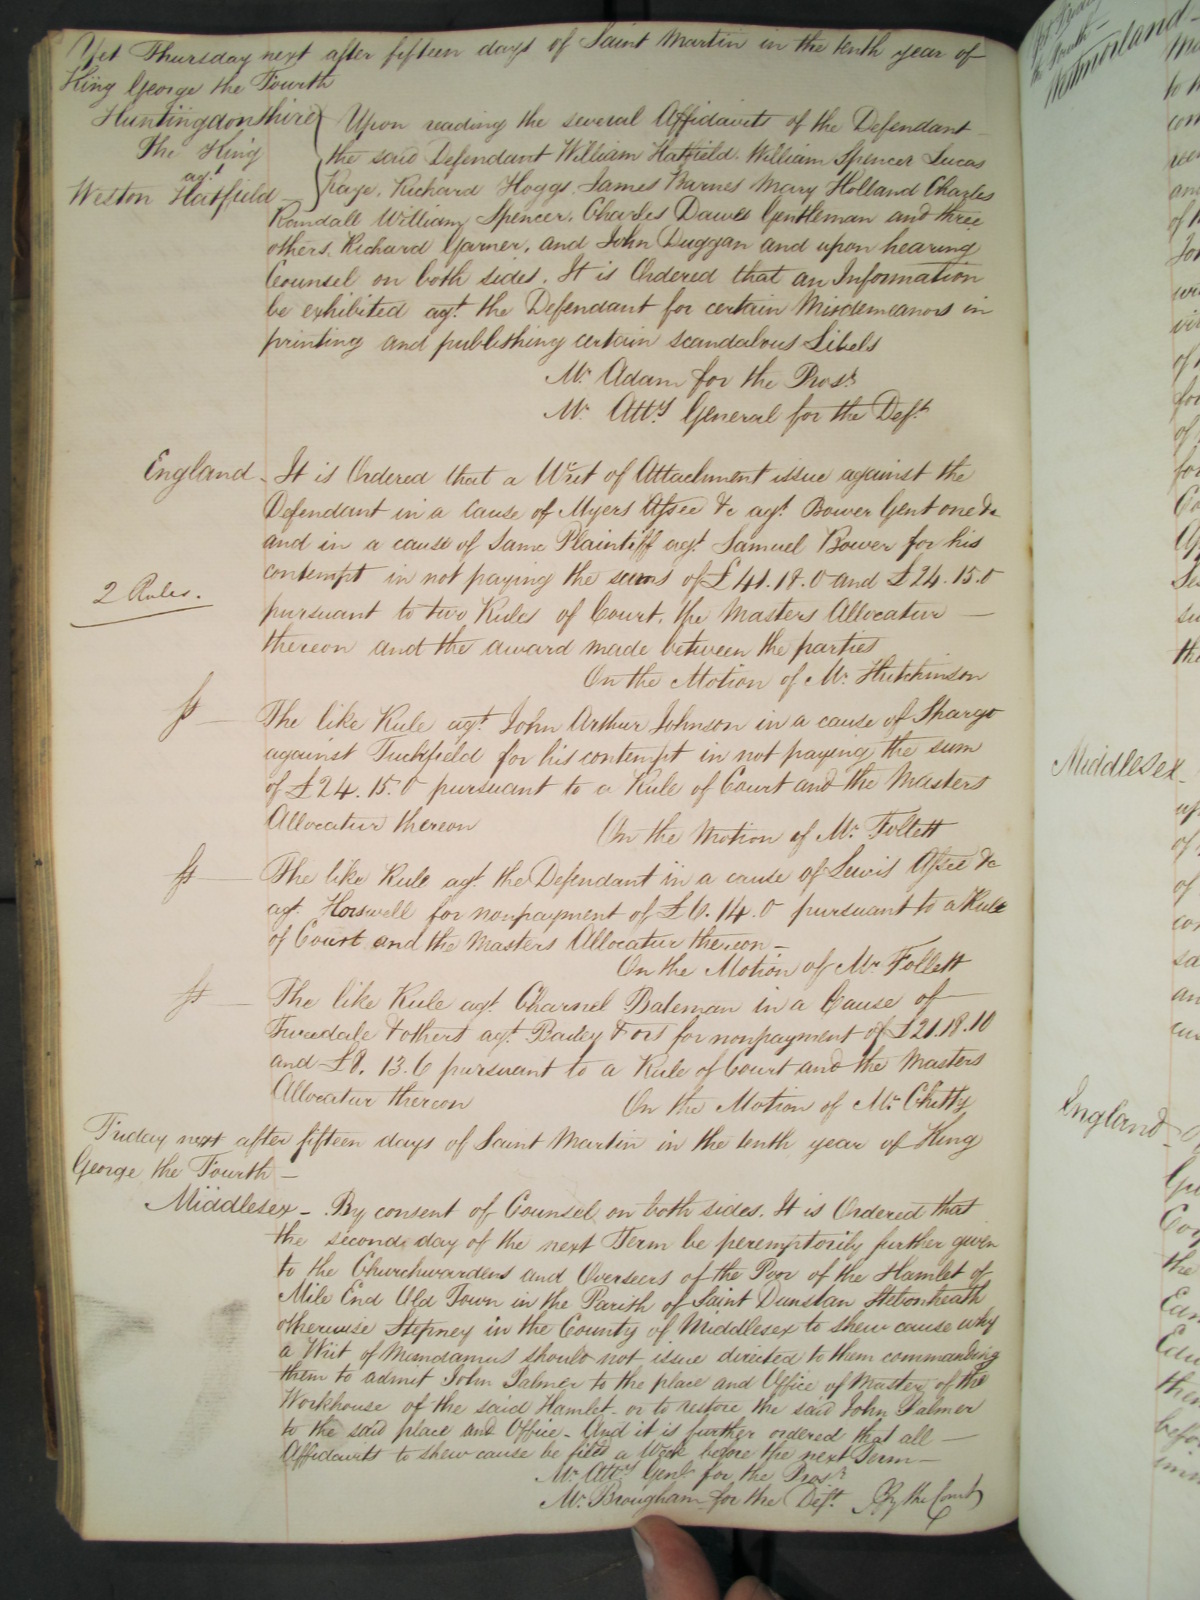 Yet Thursday next after fifteen days of Saint Martin in the tenth year of
King George the Fourth
Huntingdonshire
The King
agt
Weston Hatfield
Upon reading the several Affidavits of the Defendant
the said Defendant William Hatfield. William Spencer Lucas
Kaye. Richard Hoggs. James Barnes Mary Holland Charles
Randall William Spencer. Charles Dawes Gentleman and three
others. Richard Garner. and John Duggan and upon hearing
Counsel on both sides. It is Ordered that an Information
be exhibited agt. the Defendant for certain Misdemeanors in
printing and publishing certain scandalous Libels
Mr. Adam for the Prosr.
Mr. Atty. General for the Deft.
England - It is Ordered that a Writ of Attachment issue against the
Defendant in a Cause of Myers Assee &c agt. Bower Gent one &c
and in a cause of same Plaintiff agt. Samuel Bower for his
contempt in not paying the sums of £41.18.0 and £24.15.0
2 Rules.
pursuant to two Rules of Court, the Masters Allocatur —
thereon and the award made between the parties
On the Motion of Mr. Hutchinson
The like Rule agt. John Arthur Johnson in a cause of Shargo
against Tuckfield for his contempt in not paying the sum
of £24.15.0 pursuant to a Rule of Court and the Masters
Allocatur thereon On the Motion of Mr. Follett
The like Rule agt. the Defendant in a cause of Lewis Assee &c
agt. Horswell for nonpayment of £6.14.0 pursuant to a Rule
of Court and the Masters Allocatur thereon -
On the Motion of Mr. Follett
The like Rule agt. Charnel Bateman in a Cause of
Tweedale & others agt. Bailey & ors for nonpayment of £21.18.10
and £8.13.6 pursuant to a Rule of Court and the Masters
Allocatur thereon On the Motion of Mr. Chitty
Friday next after fifteen days of Saint Martin in the tenth year of King
George the Fourth -
Middlesex - By consent of Counsel on both sides. It is Ordered that
the second day of the next Term be peremptorily further given
to the Churchwardens and Overseers of the Poor of the Hamlet of
Mile End Old Town in the Parish of Saint Dunstan Stebonheath
otherwise Stepney in the County of Middlesex to shew cause why
a Writ of Mandamus should not issue directed to them commanding
them to admit John Palmer to the place and Office of Master of the
Workhouse of the said Hamlet - or to restore the said John Palmer
to the said place and Office - And it is further ordered that all —
Affidavits to shew cause be filed a Week before the next Term —
Mr. Atty. Genl. for the Prosr.
Mr. Brougham for the Deft. By the Court
Westmorland -
Middlesex -
England -